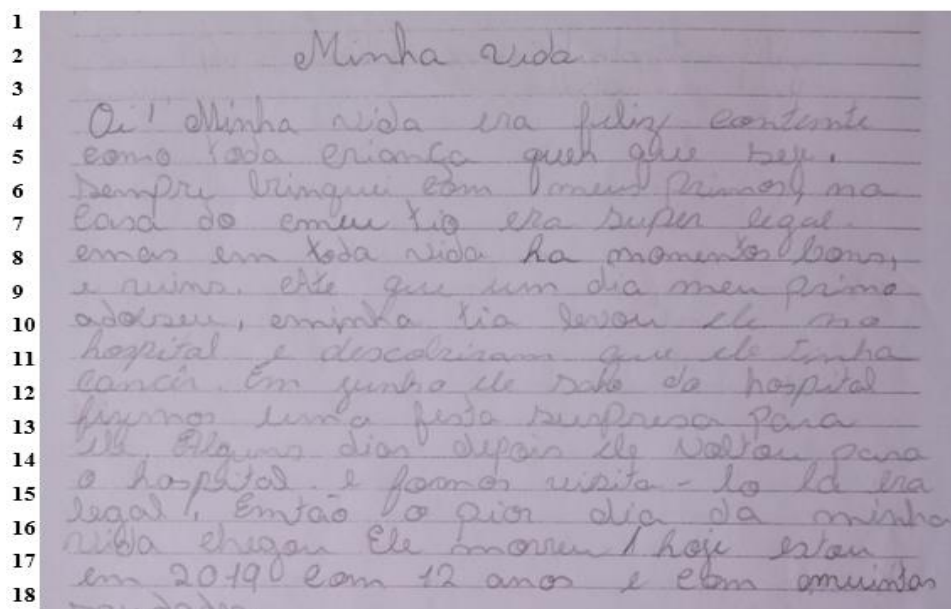 1
2 Minha vida
3
4 Oi! Minha vida era feliz contente
5 como toda criança quer que seje.
6 sempre brinquei com meus primos, na
7 casa do emeu tio era super legal.
8 emas em toda vida ha momentos bons,
9 e ruins. Ate que um dia meu primo
10 adoeseu, eminha tia levou ele no
11 hospital e descobriram que ele tinha
12 cancêr. Em junho ele saho do hospital
13 fizemos uma festa surpresa para
14 ele. Alguns dias depois ele voltou para
15 o hospital e fomos visita-lo lá era
16 legal. Então o pior dia da minha
17 vida chegou Ele morreu / hoje estou
18 em 2019 com 12 anos e com emuintas